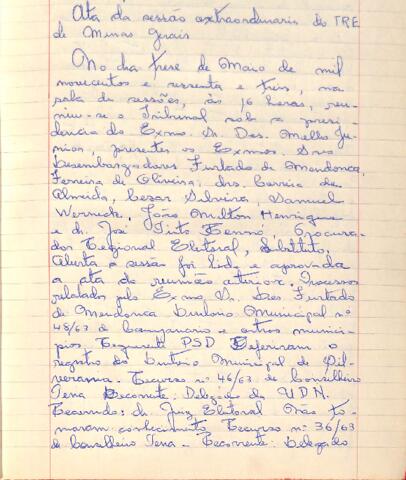 Ata da sessão extraordinaria do TRE
de Minas Gerais
No dia treze de Maio de mil
novecentos e sessenta e três, na
sala de sessões, às 16 horas, reu-
niu-se o Tribunal sob a presi-
dencia do Exmo. Sr. Des. Mello Ju-
nior, presentes os Exmos. Srs.
Desembargadores Furtado de Mendonca,
Ferreira de Oliveira, drs. Correia de
Almeida, Cesar Silveira, Samuel
Werneck, João Milton Henrique
e dr. José Tito Procura-
dor Regional Eleitoral, Substituto,
Aberta a sessão foi lida e aprovada
a ata da reunião anterior. Processos
relatados pelo Exmo. Sr. Des. Furtado
de Mendonca Diretorio Municipal nº
48/63 de Campanario e outros municí-
pios. Requerente PSD Deferiram o
registro do Diretorio Municipal de Sil-
verania. Recurso nº 46/63 de Conselheiro
Pena Recorrente: Delegado da UDN.
Recorrido: dr. Juiz Eleitoral Não to-
maram conhecimento Recurso nº 36/63
de Conselheiro Pena - Recorrente: Delegado